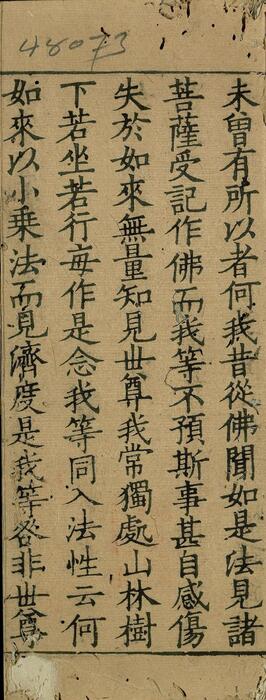 48073
未曾有所以者何我昔從佛聞如是法見諸
菩薩受記作佛而我等不預斯事甚自感傷
失於如來無量知見世尊我常獨處山林樹
下若坐若行每作是念我等同入法性云何
如來以小乗法而見濟度是我等咎非世尊